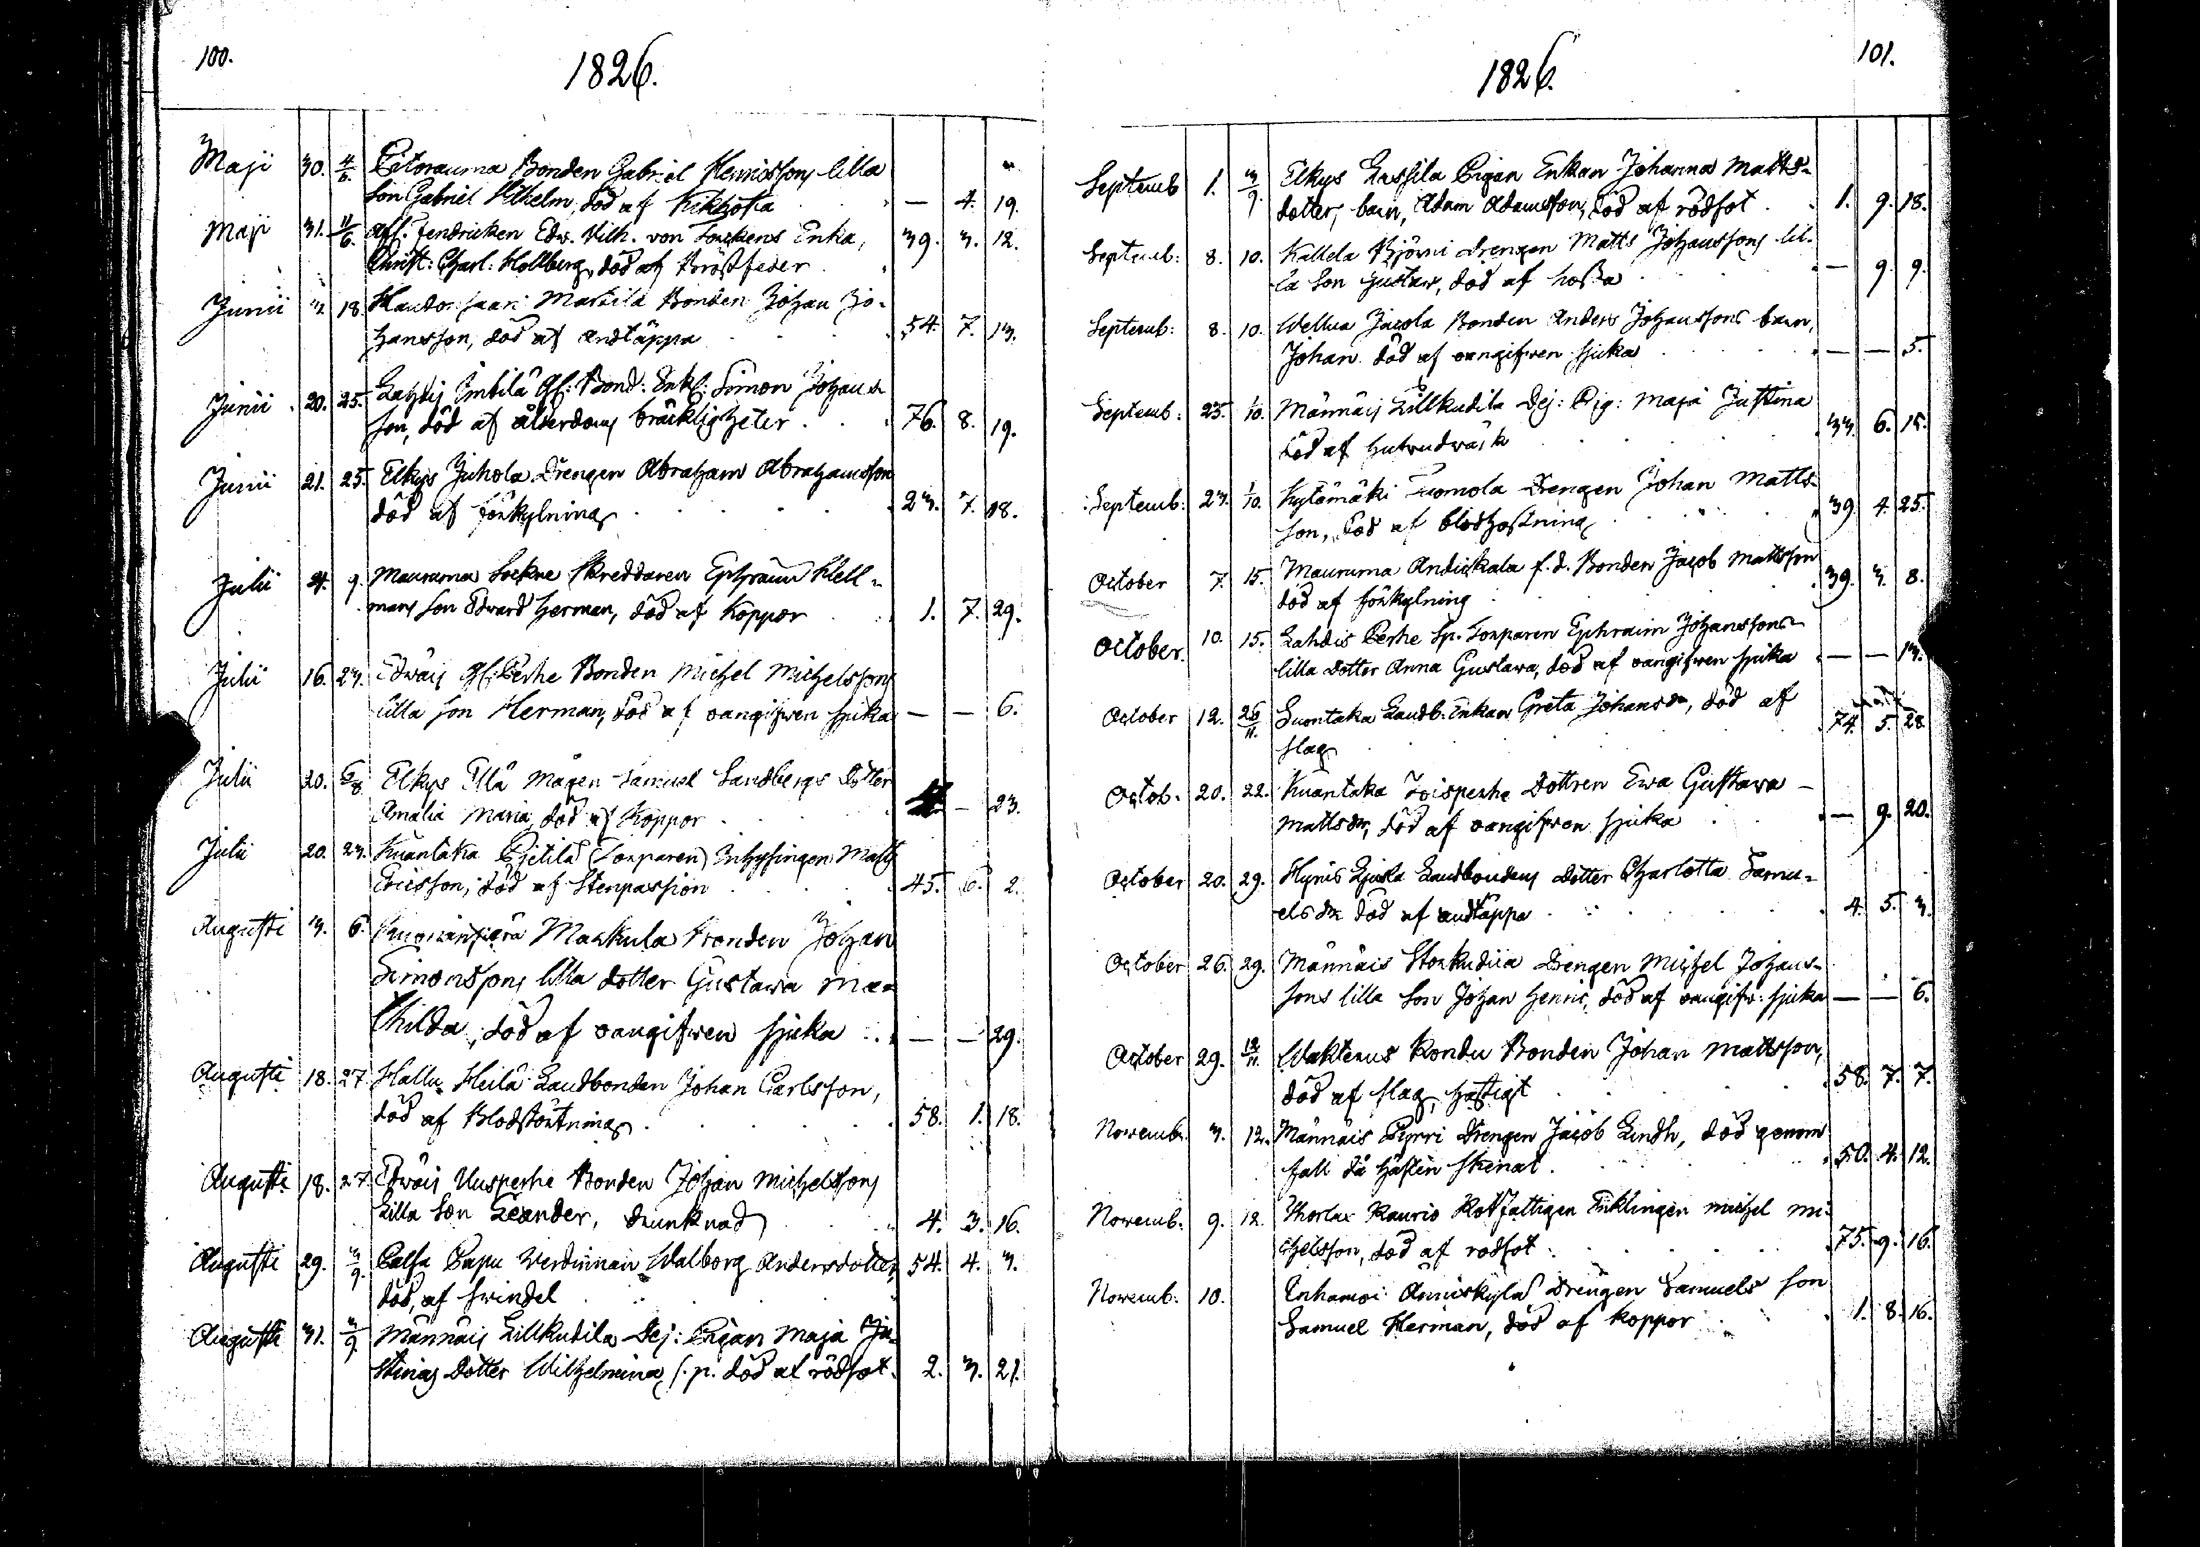 100.
1826.
Maji 30. 4/6. Pitorauma Bonden Gabriel Henrissons lilla
son Gabriel Wilhelm, död af Kikhosta — 4. 19.
Maji 31. 11/6. afl. fendricken Edv. Vilh. von Enka,
Christ: Charl: Hollberg, död af bröstfeber 39. 3. 12.
Junii 18. Martila Bonden Johan Jo-
hansson, död af andtäppa 54. 7. 13.
Junii 20. 25. Bond: Enkl: Simon Johans
son, död af ålderdoms bräckligheter 76. 8. 19.
Junii 21. 25. Elkys Juhola Drengen Abraham Abrahamsson
död af förkylning 23. 7. 18.
Julii 4. 9. Mauruma Sockne skreddaren Ephraim Hell-
mans son Edvard Herman, död af Koppor 1. 7. 29.
Julii 16. 23. Perhe Bonden Michel Michelssons
lilla son Herman, död af oangifven sjuka — — 6.
Julii 20. 6/8. Elkys Ellä Mågen Samuel Sandbergs Dotter
Amalia Maria, död af Koppor — 23.
Julii 20. 23. Kuantaka Pietilä (Torparen) Inhysingen Matts
Ericsson, död af Stenpassion 45. 6. 2.
Augusti 3. 6. Markula Bonden Johan
Simonssons lilla dotter Gustava Ma-
thilda, död af oangifven sjuka — — 29.
Augusti 18. 27. Hallu Heilä Landbonden Johan Carlsson,
död af Blodstörtning 58. 1. 18.
Augusti 18. 27. Uusperhe Bonden Johan Michelssons
Lilla Son Leander, drunknad 4. 3. 16.
Augusti 29. 3/9. Papu Walborg Andersdotter,
död, af svindel 54. 4. 3.
Augusti 31. 3/9. Männäis Lillkudila Dej: Pigan Maja Ju-
stinas Dotter Wilhelmina, s. p. död af rödsot 2. 3. 21.
101.
1826.
Septemb 1. 3/9. Elkys Lassila Pigan Enkan Johanna Matts-
dotter, barn, Adam Adamsson, död af rödsot 1. 9. 18.
Septemb: 8. 10. Kallela Björni Drengen Matts Johanssons lil-
la Son Gustav, död af hosta — 9. 9.
Septemb: 8. 10. Wellua Jacola Bonden Anders Johanssons barn,
Johan död af oangifven sjuka — — 5.
Septemb: 25. 1/10. Männäis Lillkudila Dej: Pig: Maja Justina
död af hufvudwärk 33. 6. 15.
Septemb: 23. 1/10. Kytömäki Tuomola Drengen Johan Matts-
son, död af blodhostning 39. 4. 25.
October 7. 15. Mauruma Andickala f. d. Bonden Jacob Mattsson
död af förkylning 39. 3. 8.
October. 10. 15. Lahdis Perhe Sp. Torparen Ephraim Johanssons
lilla dotter Anna Gustava, död af oangifven sjuka — — 13.
October 12. 26/11. Suontaka Landb. Enkan Greta Johansdr, död af
slag 74. 5. 28.
Octob. 20. 22. Kuantaka Dottren Ewa Gustava
Mattsdr, död af oangifven sjuka — 9. 20.
October 20. 29. Landbondens Dotter Charlotta Samu-
elsdr död af andtäppa 4. 5. 3.
October 26. 29. Männäis Storkudila Drengen Michel Johans-
sons lilla Son Johan Henric, död af oangifv: sjuka — — 6.
October 29. 12/11. Rondu Bonden Johan Mattsson,
död af slag, hastigt 58. 7. 7.
Novemb. 3. 12. Männäis Pyrri Drengen Jacob Lindh, död genom
fall då hästen skenat 50. 4. 12.
Novemb: 9. 12. Kaurio Rotfattigen Enklingen Michel Mi-
chelsson, död af rodsot 75. 9. 16.
Novemb: 10. Drengen Samuels son
Samuel Herman, död af koppor 1. 8. 16.